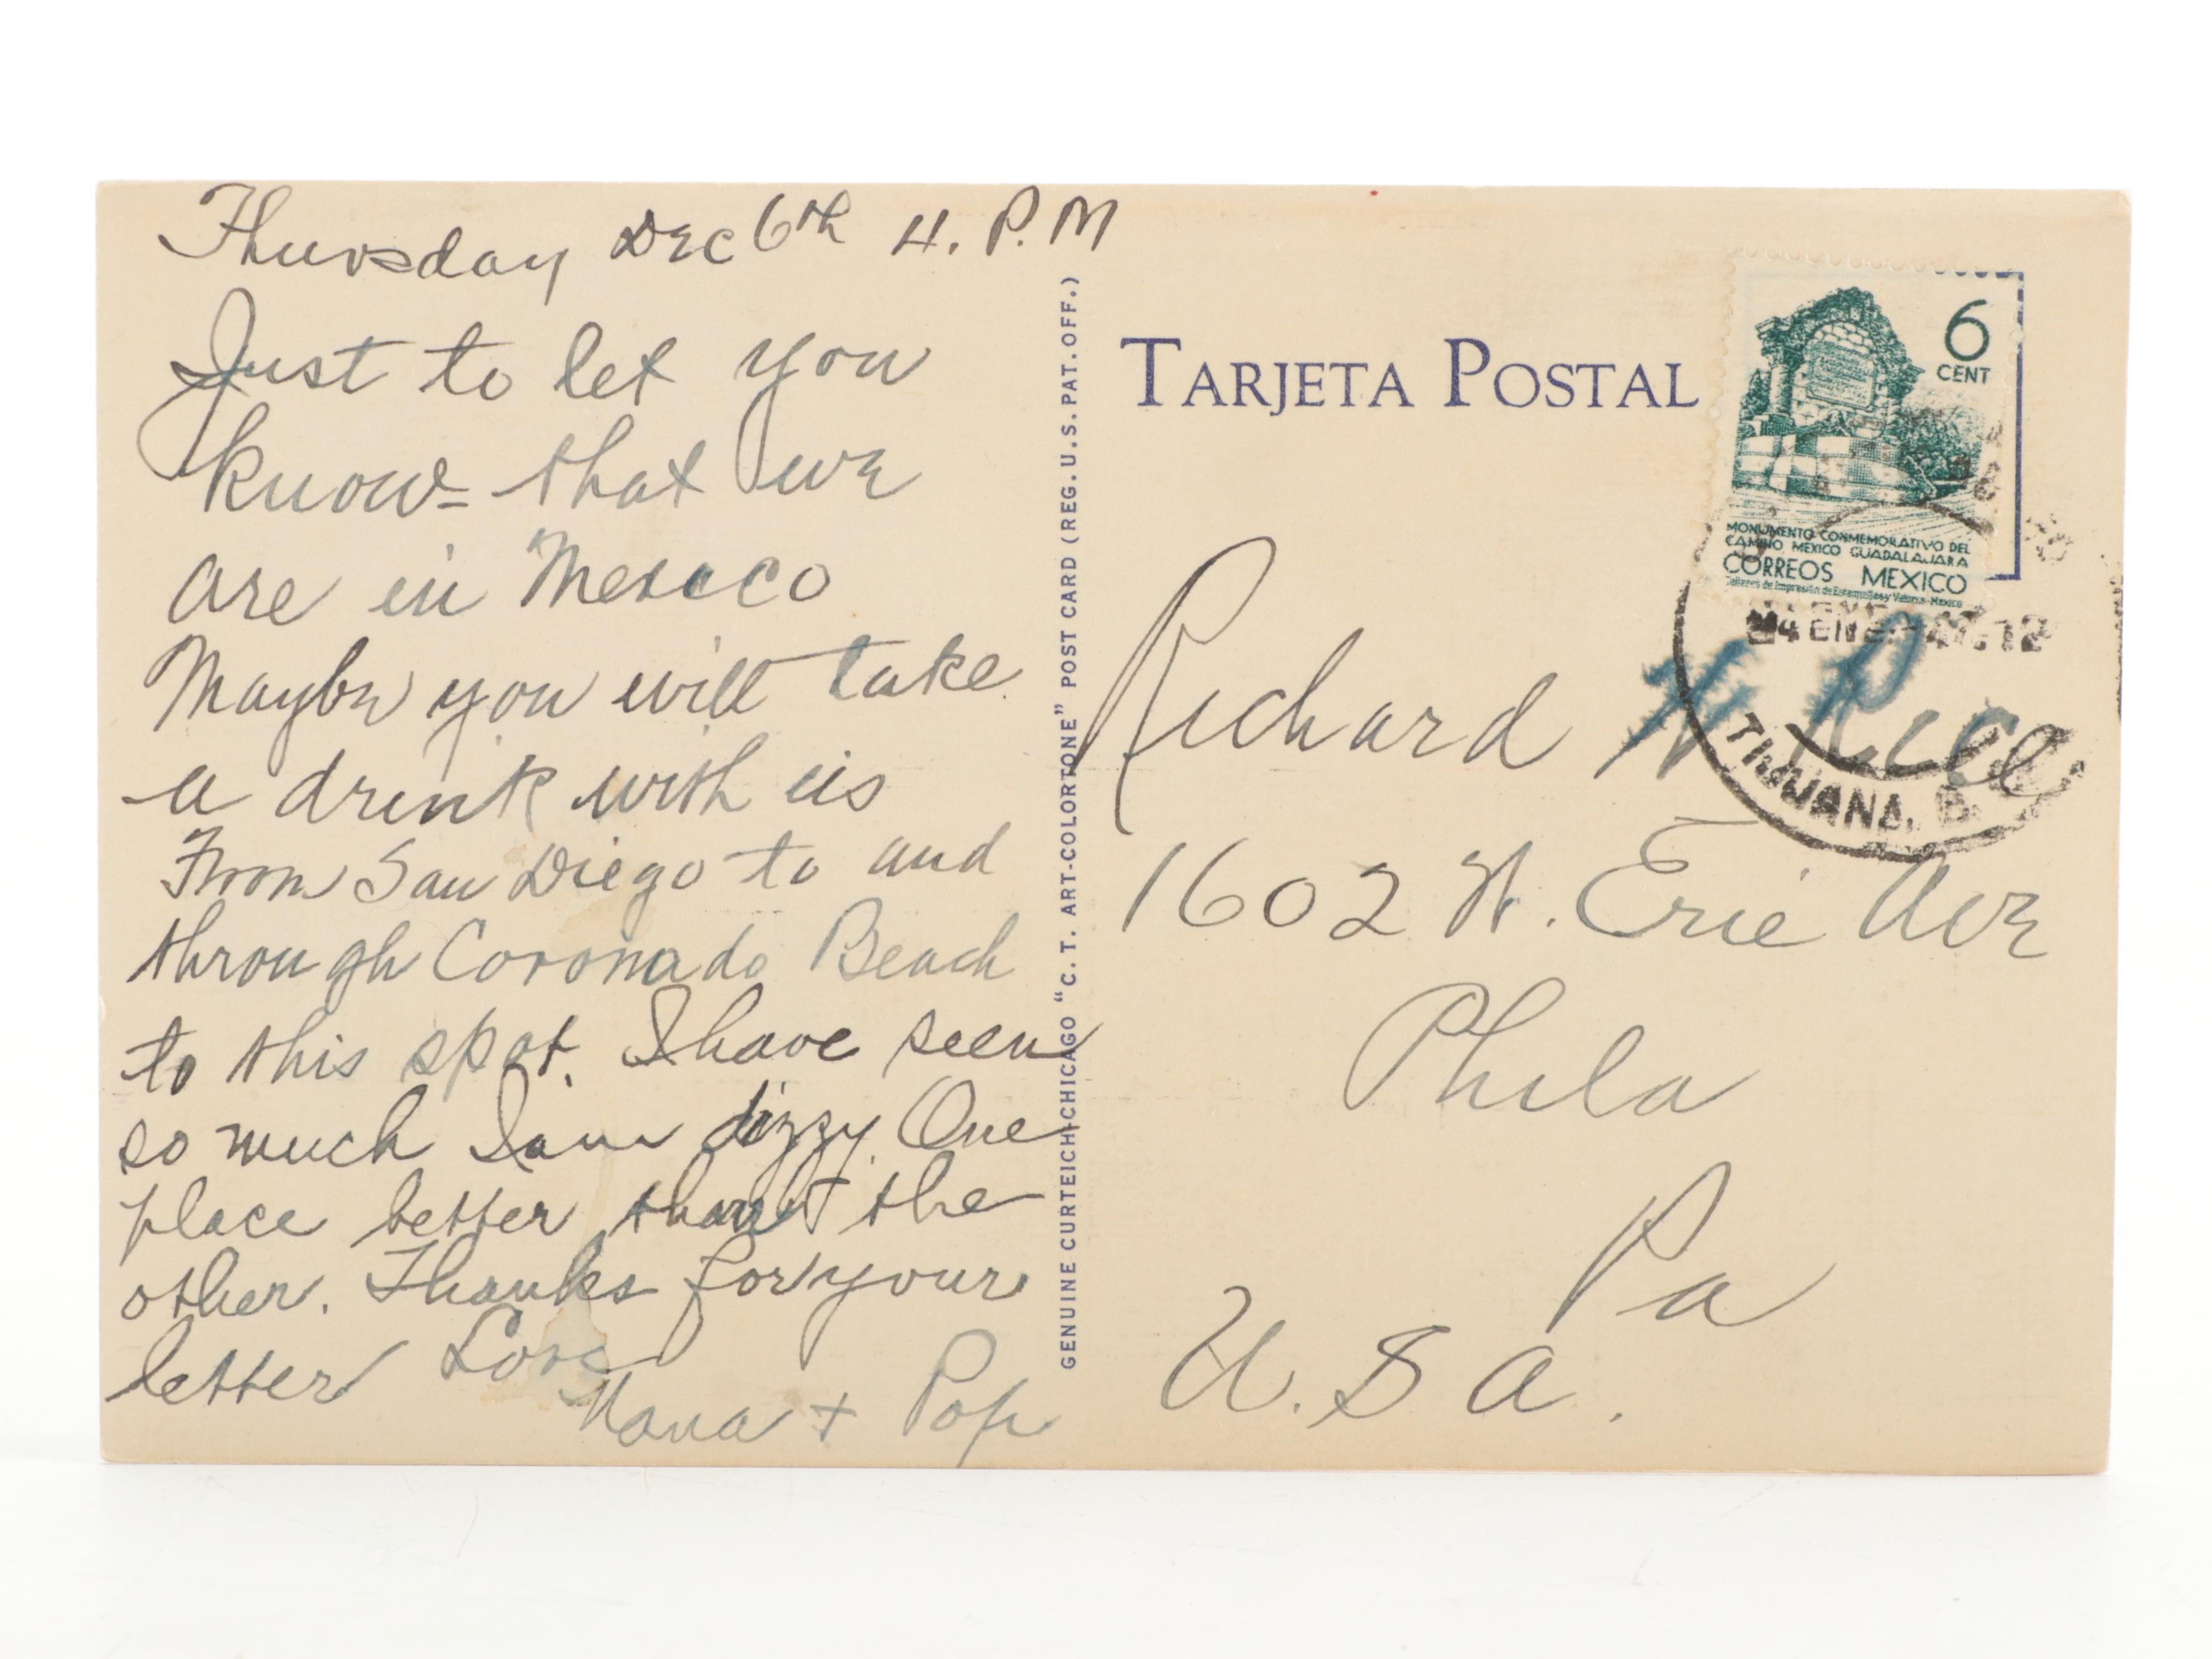 Thursday Dec 6th 4. P.M
Just to let you
know - that we
are in Mexico
Maybe you will take
a drink with us
From San Diego to and
through Coronado Beach
to this spot. I have seen
so much I am dizzy. One
place better than the
other. Thanks for your
letter Love
Nana + Pop
GENUINE CURTEICH-CHICAGO "C. T. ART-COLORTONE" POST CARD (REG. U. S. PAT. OFF.)
TARJETA POSTAL
6
CENT
MONUMENTO CONMEMORATIVO DEL
CAMINO MEXICO GUADALAJARA
CORREOS MEXICO
Talleres de Impresión de Estampillas y Valores-Mexico
4 ENE 12
TIJUANA, B.
Richard W Rice
1602 W. Erie Ave
Phila
Pa
U.S.A.